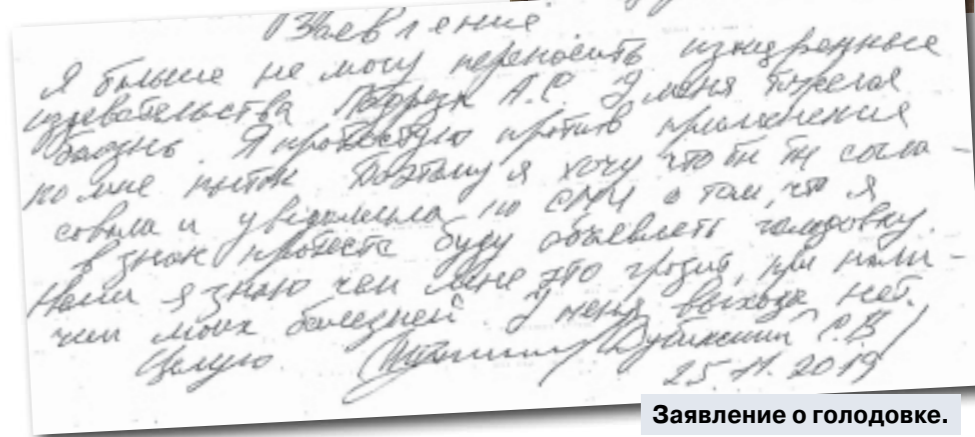 Заявление.
Я больше не могу переносить изощренные
издевательства А.С. У меня тяжелая
болезнь. Я протестую против применения
ко мне пыток Поэтому я хочу что бы ты согла-
совала и уведомила по СМИ о том, что я
в знак протеста буду объявлять голодовку.
я знаю чем мне это грозит, при нали-
чии моих болезней. У меня выхода нет.
Целую. С.В/
25.11.2019
Заявление о голодовке.